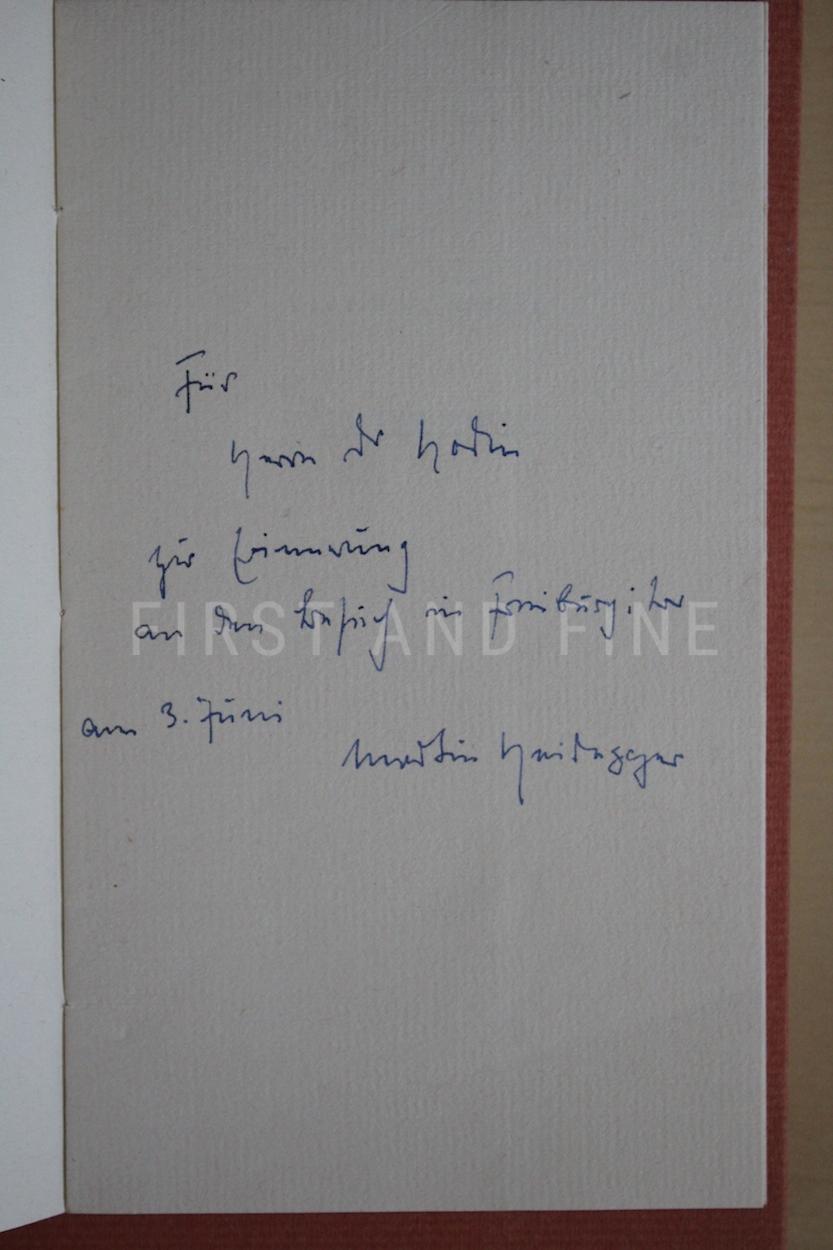 Für
Herrn Dr Hodin
zur Erinnerung
an den Besuch in Freiburg i. Br
am 3. Juni
Martin Heidegger
FIRST AND FINE